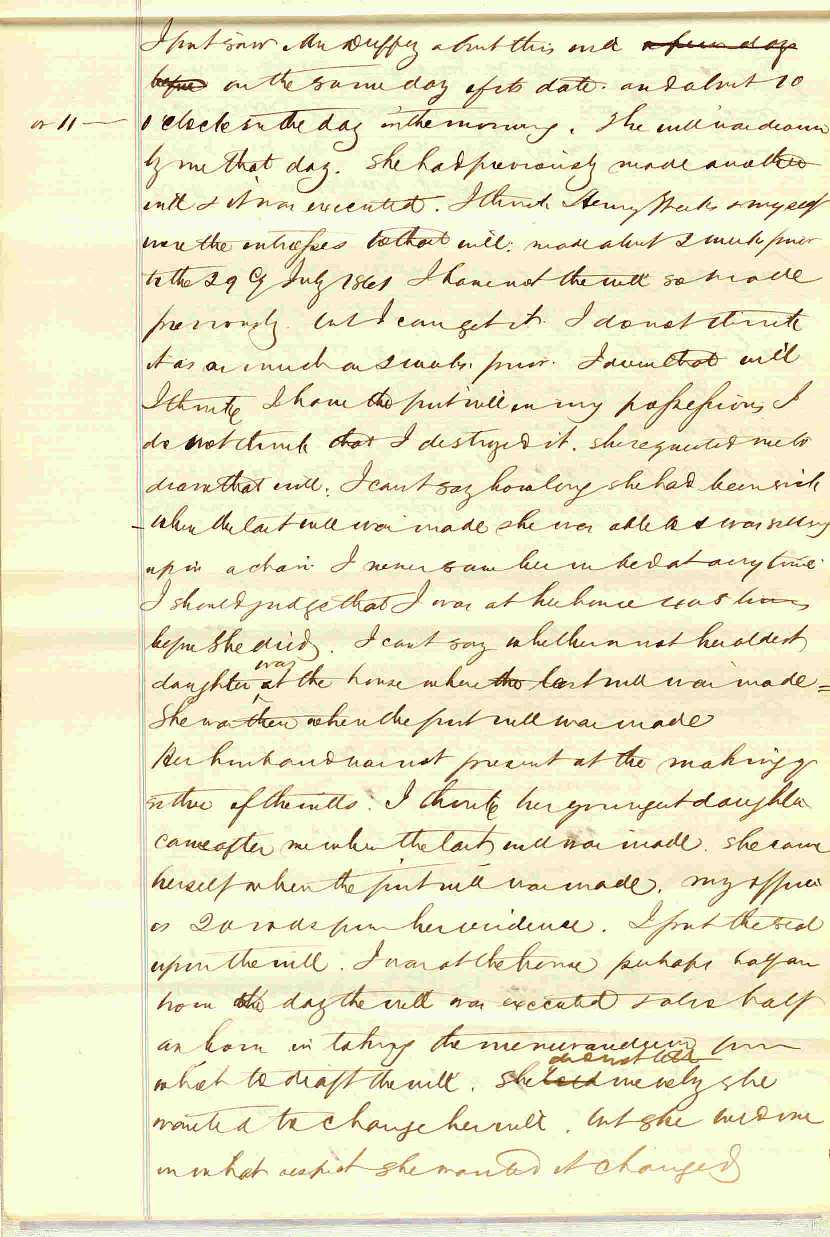 I first saw Mrs Duffey about this will a few days
before on the same day of its date. and about 10
or 11 — o'clock in the day in the morning. The will was drawn
by me that day. She had previously made another
will & it was executed. I think Henry & myself
were the witnesses to that will: made about 2 weeks prior
to the 29 of July 1861 I have not the will so made
previously. but I can get it. I do not think
it as as much as 2 weeks prior. I drew that will
I think I have the first will in my possession, I
do not think that I destroyed it. she requested me to
draw that will. I cant say how long she had been sick
when the last will was made she was able to & was sitting
up in a chair I never saw her in bed at any time
I should judge that I was at her house
before she died. I cant say whether or not her oldest
daughter was at the house when the last will was made =
She was then when the first will was made
Her husband was not present at the making of
either of the wills. I think her youngest daughter
came after me when the last will was made. she came
herself when the first will was made. my office
is 20 rods from her residence. I put the seal
upon the will. I was at the house perhaps half an
hour the day the will was executed & also half
an hour in taking the memorandum from
which to draft the will. She told did not tell me why she
wanted to change her will. but she told me
in what respect she wanted it changed